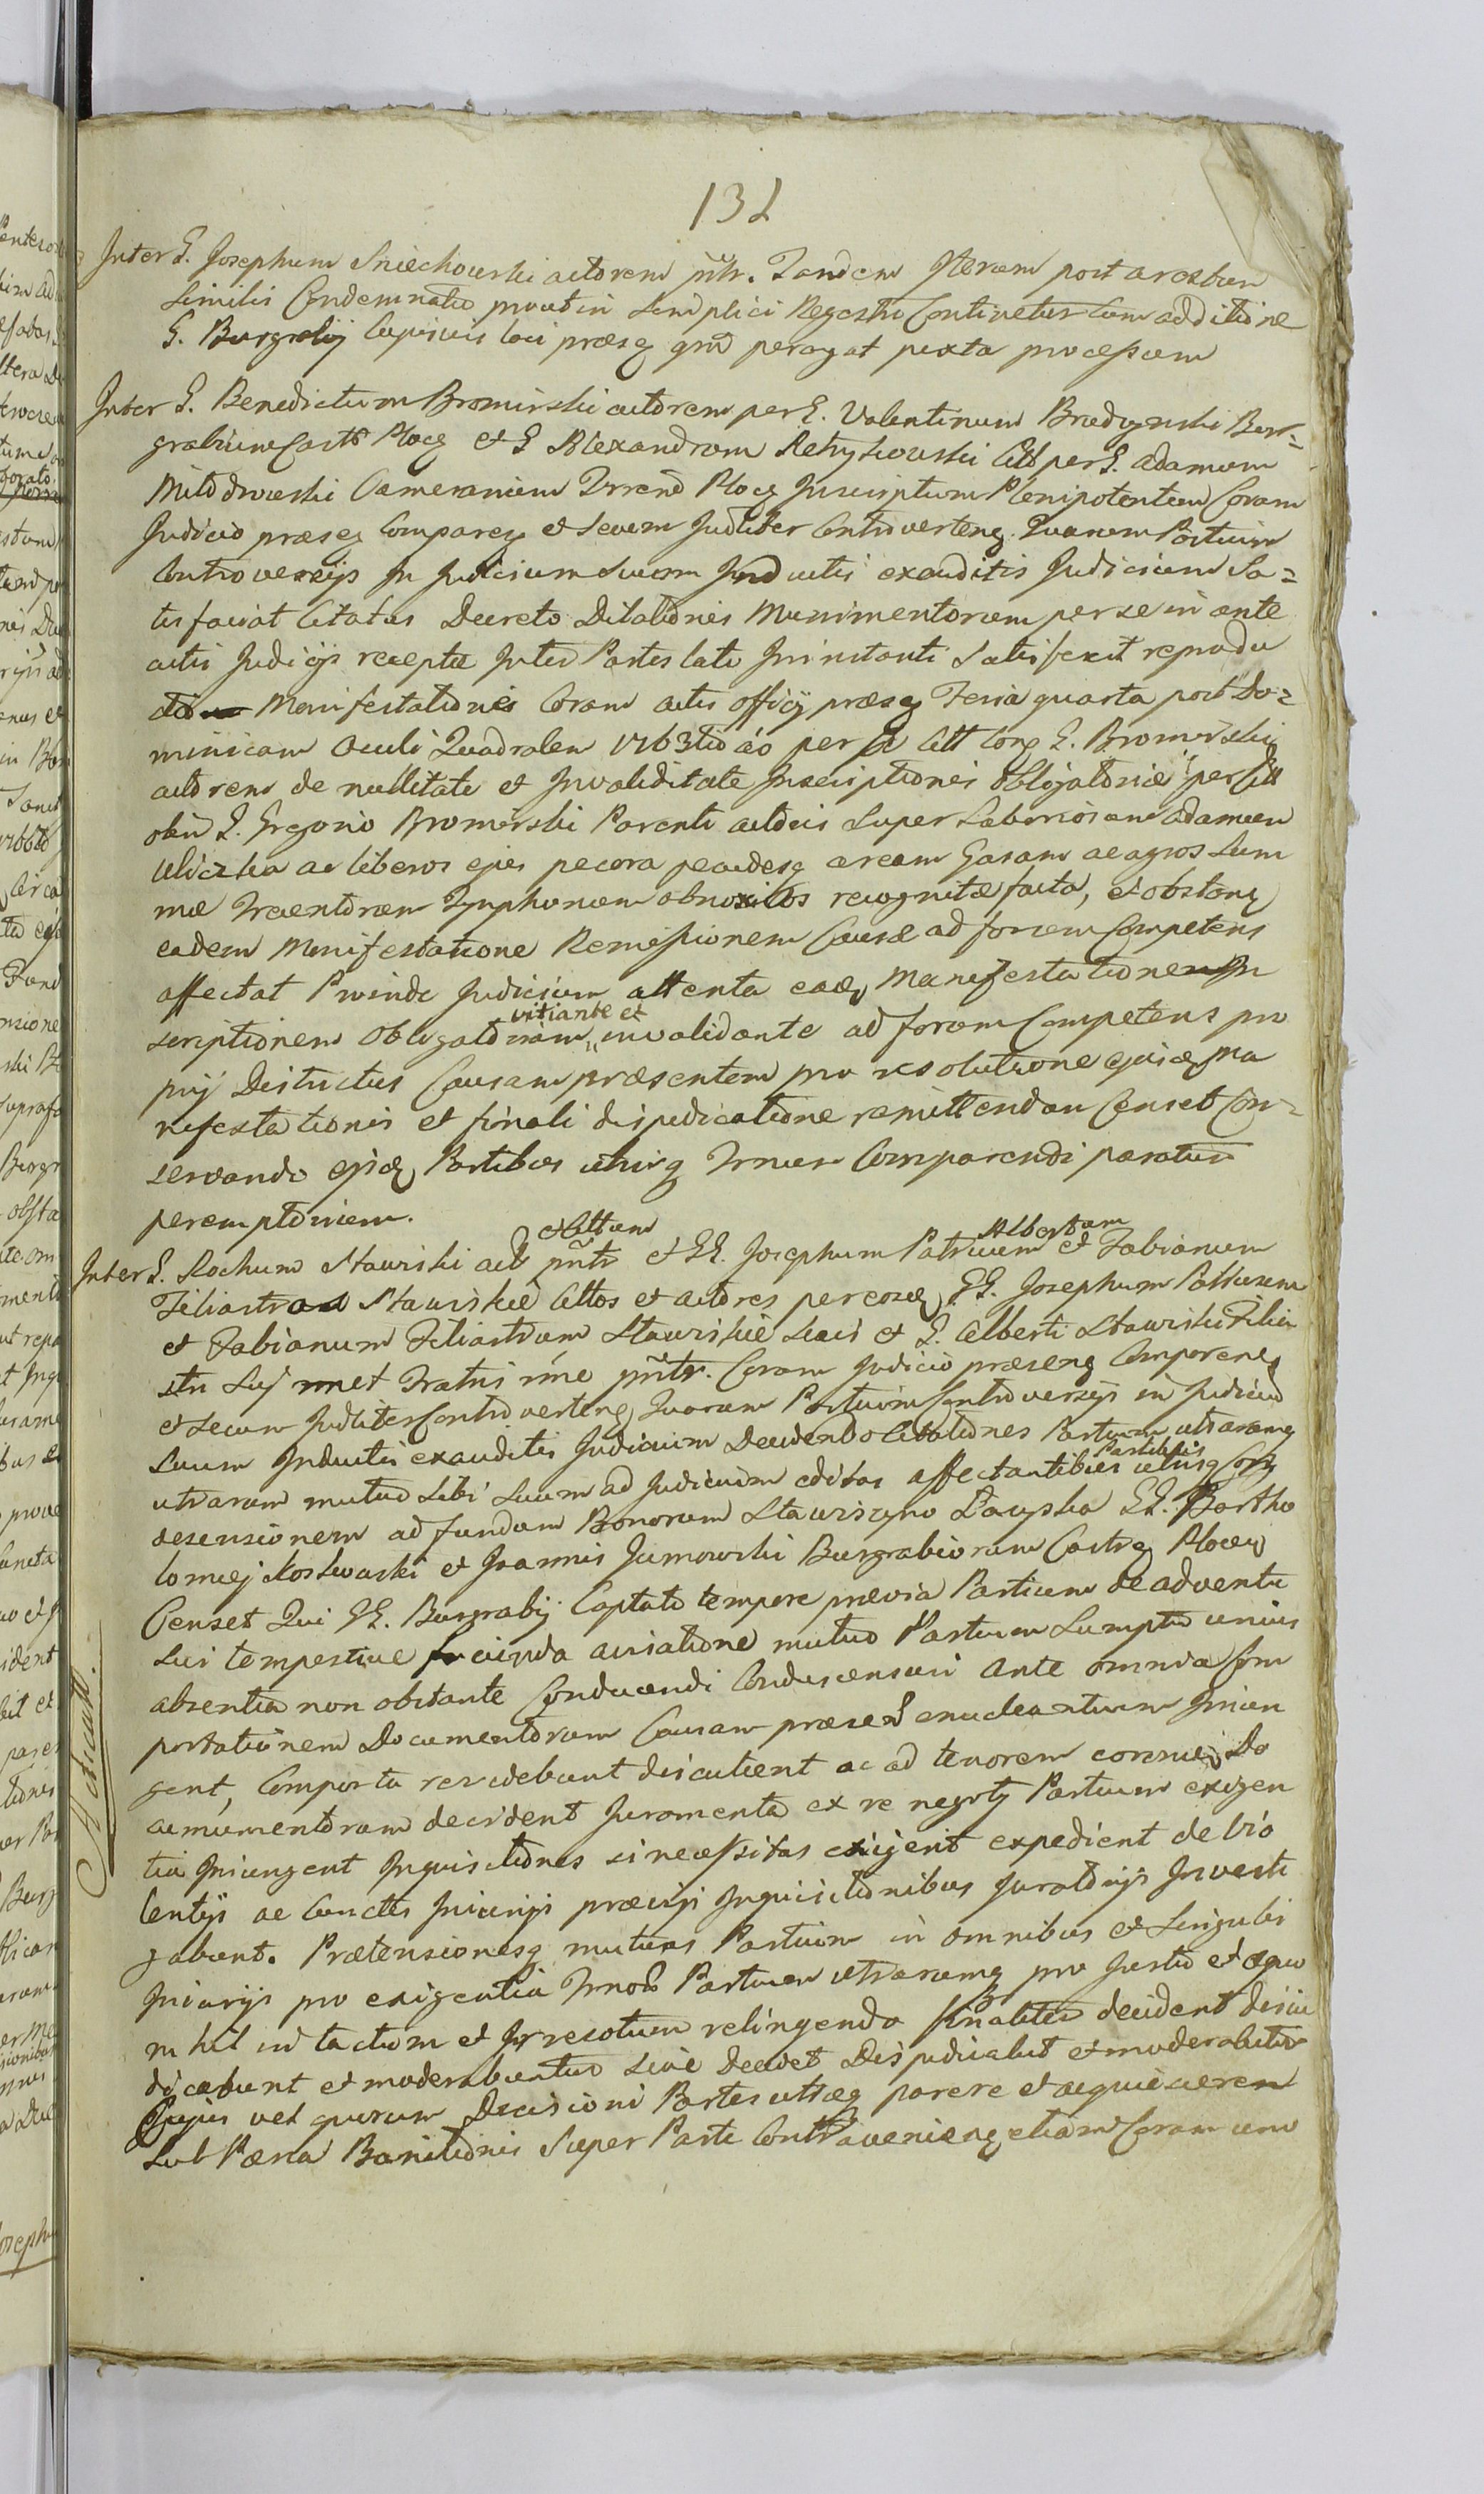 132
Inter G. Josephum Sniechowski actorem pntr. Tandem Iterum post arestum
Similis Condemnatio prout in Simplici Regestro Continetur Cum additione
G. Burgrabij Cujusvis loci præsq qnd peragat juxta processum
Inter G. Benedictum Bromirski actorem per G. Valentinum Bred Bur=
grabium Castr Plocq et G Alexandrum Retrykowski Citt per G. Adamum
Mlodrowski Camerarium Trrend Plocq Inscriptum Plenipotentem Coram
Judicio præseq Compareq et Secum Judliter Controverteng. Quarum Partium
Controversijs In Judicium Suum Inductis exauditis Judicium Sa=
tisfaciat Citatus Decreto Dilationis Munimentorum per se in ante
actis Judicijs receptæ Inter Partes lato Ininstanti Satisfecit reprodu
cto Manifestationis Coram actis officij præseq Feria quarta post Do=
minicam Oculi Quadralem 1763tio ao per Citt Cong G. Bromirski
actorem de nullitate et Invaliditate Inscriptionis Obligatoriæ per Citt
olim G. Gregorio Bromirski Parenti actoris Super Laboriosum Adamum
Uliczka ac liberos ejus pecora pecudesq aream Gasam ac agros Sum
mæ Trecentorum Tynphonum obnoxios recognitæ facta, et obstanq
eadem Manifestatione Remissionem Causæ ad forum Competens
affectat Proinde Judicium attenta eaq Manifestatione In
vitiante et
scriptionem Obligatoriam " invalidante ad forum Competens pro
prij Districtus Causam præsentem pro resolutione ejusq Ma
nifestationis et finali disjudicatione remittendam Censet Con=
servando ejsq Partibus utrisq Trnum Comparendi paratum
peremptorium.
et Cittum Albertum
Inter G. Rochum Stawiski act pntr et GG. Josephum Patruum et Fabianum
Filiastrum Stawiskie Cittos et actores per eosq GG. Josephum Patruum
et Fabianum Filiastrum Stawiskie Suis et G. Alberti Stawiski Filia
stri Suj met Fratris nne pntr. Coram Judicio præseng Comparenq
et Secum Judliter Controverteng Quarum Partium Controversijs in Judicium
Suum Inductis exauditis Judicium Decidendo Citationes Partium utrarumq
Partibus
utrarum mutuo Sibi Suum ad Judicium editas affectantibus utrisq Con
descensionem ad fundum Bonorum Stawisyno Laupska GG. Bartho
lomæj Koskowski et Joannis Jumowski Burgrabiorum Castrq Plocq
Censet Qui GG. Burgrabij Captato tempore prævia Partium de adventu
Sui tempestive facienda avisatione mutuo Partium Sumptu unius
absentia non obstante Conducendi Condescensuri Ante omnia Com
portationem Documentorum Causam præseq enucleantium Iniun
gent, Comportu revidebunt discutient ac ad tenorem eorumq Do
cumentorum decident Juramenta ex re negotij Partium exigen
tia Iniungent Inquisitiones si necessitas exigerit expedient de vio
lentijs ac Cunctis Iniurijs præcisis Inquisitionibus Juratorijs Investi
gabunt. Prætensionesq mutuas Partium in omnibus et Singulis
Iniurijs pro exigentia Trnod Partium utrarumq pro Justo et æquo
nihil intactum et Irresotum relinquendo finaliter decident disju
dicabunt et moderabuntur sive Decidet Disjudicabit et moderabitur
Cujus vel quorum Decisioni Partes utræq parere et acquiescere
Sub Pæna Banitionis Super Parte Contravenienq etiam Coram uno